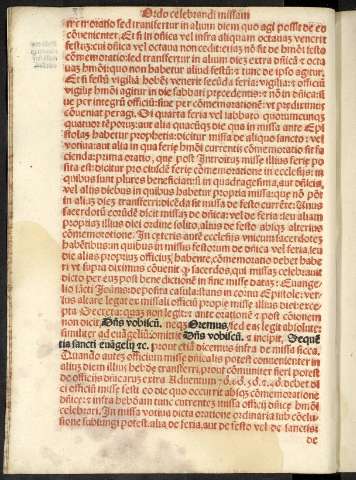 Ordo celebrandi missam
rem oratio sed transfertur in alium diem in quo agi possit de eo
cōvenienter. Et si in dn̄ica vel infra aliquam octavas venerit
festuz: cui dn̄ica vel octava non cedit:
cōmemoratio: sed transfertur in alium diez extra dn̄ica ⁊ octavā
in quibus non habentur aliud festuz: ⁊ tunc de ipso agitur.
Et si festū vigiliā habēs venerit secūda feria: vigilia: ⁊ officiū
vigilie hmōi agitur in die sabbati precedentis: ⁊ nō in dn̄ica: siue
per integrū officiū: siue per cōmemorationē: vt predictum
cōveniat peragi. Qui quarta feria vel sabbato quorumcunqȝ
quatuor tēporuz: aut alia quacūqȝ die qua in missa ante Epistolaz
habetur prophetia: dicitur missa de aliquo sancto: vel
votiua: aut alia in qua ferie hmōi currentis cōmemoratio sit facienda:
prima oratio, que post Introituz misse illius ferie posita
est: dicitur pro eiusdē ferie cōmemoratione in ecclesijs: in
quibus sunt plures beneficiati: si in quadragesima, aut dn̄icis,
vel alijs diebus in quibus habetur propria missa: que nō potest
in aliaz diez transferri: dicēda sit missa de festo currēte: Unus
sacerdotū eorūdē dicit missaz de dn̄ica: vel de feria: seu aliam
propriaz illius diei ordine solito, alius de festo absqȝ alterius
cōmemoratione. In ceteris autē ecclesijs vnicum sacerdotez
habētibus: in quibus it missus festorum de dn̄ica vel feria: seu
die alias proprius officiuz habente, cōmemoratio debet haberi
vt supra diximus cōuenit qȝ sacerdos, qui missaz celebrauit
dicto per euz post benedictionem in fine misse datar: Euangelio
sācti Joānis: deposita casula: stans in cornu Epistole: versus
altare legat ex missali officiū proprie misse illius diei excepta
Secreta: quas non legit: ⁊ ante orationē ⁊ post cōionem
non dicit, Dn̄s vobiscū. neqȝ Oremus, sed eas legit absolute:
similiter ad euāgeliū: omittit Dn̄s vobiscū. ⁊ incipit, Sequētia
sancti euāgelij ⁊c. prout etiā dicemus infra de missa sicca.
Quando autez officium misse dn̄icalis potest conuenienter in
alium diem illius hebde. transferri, prout cōmuniter fieri potest
de officijs dn̄icaruz extra Aduentum
ci officiū misse festi eo die quo occurrit absqȝ cōmemoratione
dn̄ice: ⁊ infra hebdōam tunc currentez missa officij dn̄ice hmōi
celebrari. In missa votiua dicta oratione ordinaria sub cōclusione
subiungi potest alia de feria, aut de festo vel de sanctis:
de